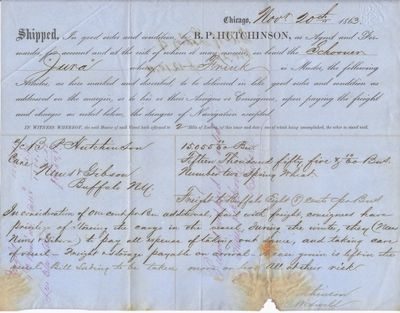 Chicago, Nov 20th 1863
Shipped, in good order and condition, by B. P. HUTCHINSON, as Agent and For-
warder, for account and at the risk of whom it may concern, on board the Schooner
"Jura" whereof Frink is Master, the following
Articles, as here marked and described, to be delivered in like good order and condition as
addressed on the margin, or to his or their Assigns or Consignees, upon paying the freight
and charges as noted below, the dangers of Navigation excepted.
IN WITNESS WHEREOF, the said Master of said Vessel hath affirmed to 2 Bills of Lading, of this tenor and date; one of which being accomplished, the other to stand void.
B. P. Hutchinson
Care
Gibson
Buffalo NY
15055 Bus
Fifteen Thousand fifty five Bus
Number two Spring Wheat
Freight to Buffalo Eight cents per Bus
In consideration of One cent per Bus additional, paid with freight, consignees have
privilege of storing the cargo in the vessel during the winter, they
to pay all expense of taking out same, and taking care
of vessel - Freight & storage payable on arrival. grain is left in the
vessel Bill Lading to be taken all other risk